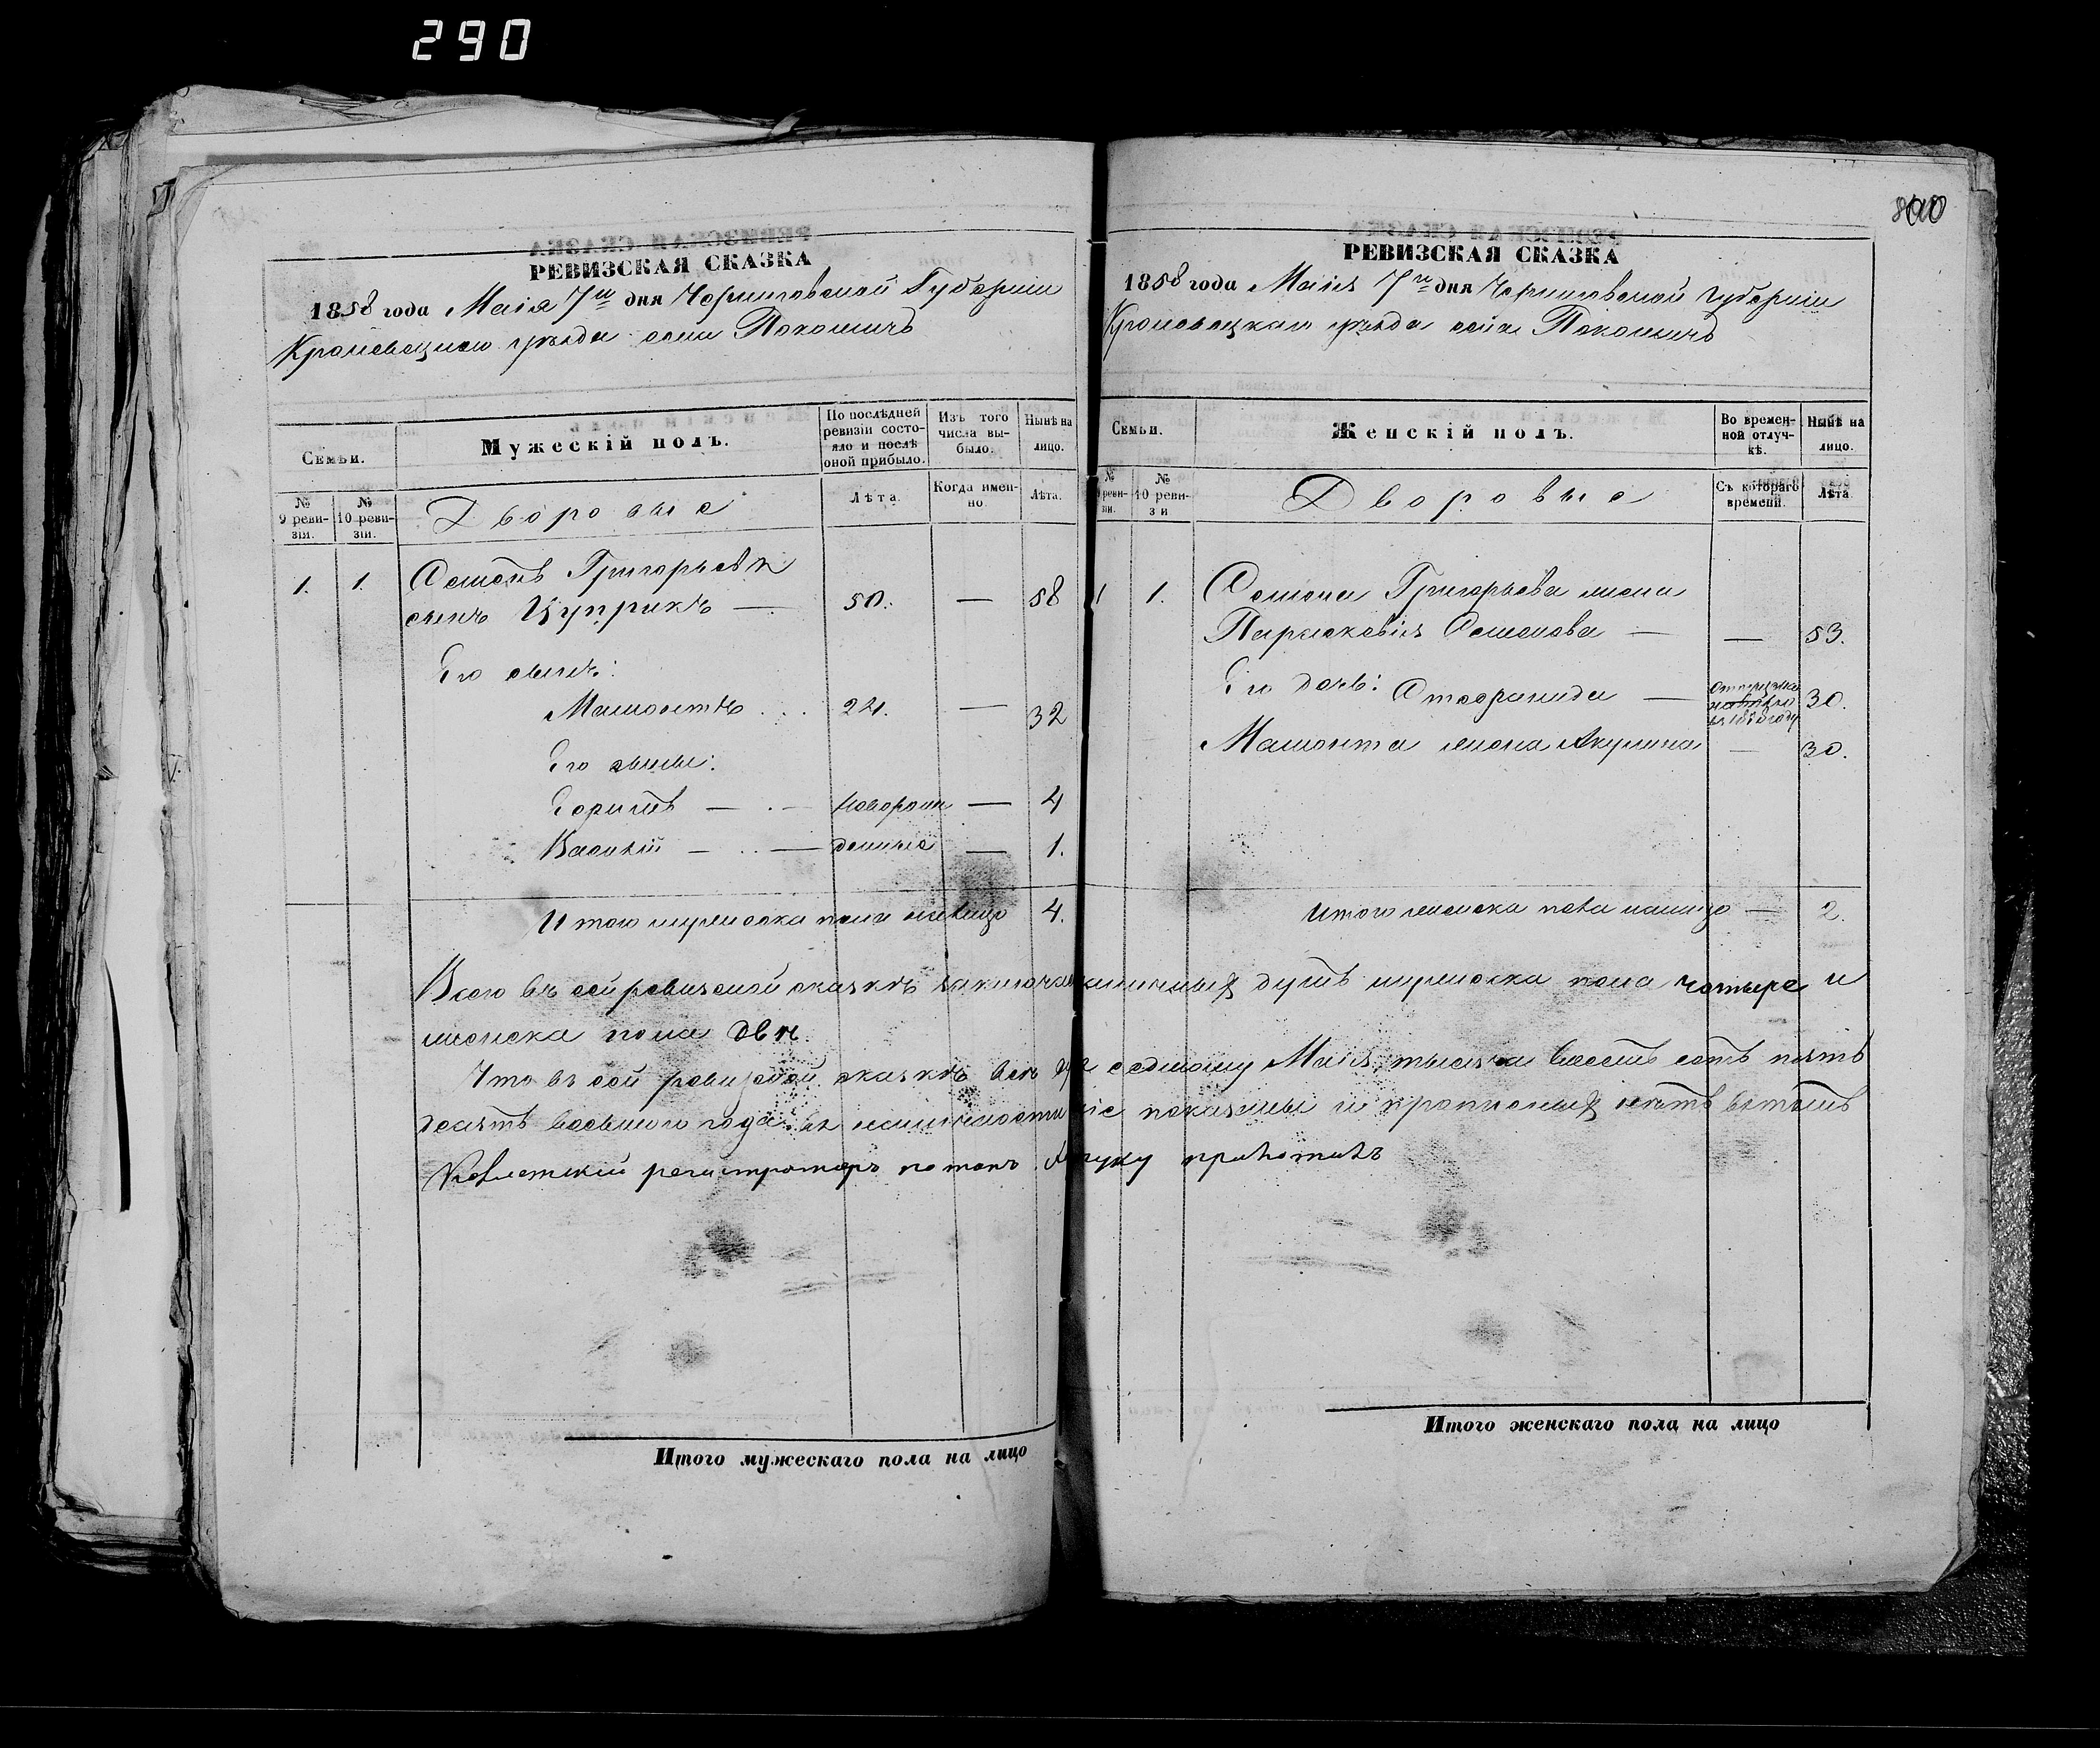 290
800
РЕВИЗСКАЯ СКАЗКА
1858 года Маія 7го дня Черниговской Губерніи
Кролевецкаго уѣзда села Покошичъ
Семьи.
Мужескій полъ.
По послѣдней ревизіи состояло и послѣ оной прибыло.
Изъ того числа выбыло.
Нынѣ на лицо.
№ 9 ревизіи.
№ 10 ревизіи.
Дворовые
Лѣта.
Когда именно.
Лѣта.
1. 1. Семенъ Григорьевъ
сынъ Цуприкъ — 50. — 58
Его сынъ:
Мамонтъ . . . 24. — 32
Его сыны:
— . — новорож — 4
Василій — . . — денные — 1.
Итого мужеска пола налицо 4.
РЕВИЗСКАЯ СКАЗКА
1858 года Маія 7го дня Черниговской Губерніи
Кролевецкаго уѣзда села Покошичъ
Семьи.
Женскій полъ.
Во временной отлучкѣ.
Нынѣ на лицо.
№ 9 ревизіи.
№ 10 ревизіи
Дворовые
Съ котораго времени.
Лѣта
1 1. Семена Григорьева жена
Параскевія Семенова — — 53.
Его дочь: — 30.
въ 1850 году
Мамонта жена Акулина — 30.
Итого женска пола налицо — 2.
Всего въ сей ревизской сказкѣ наличныхъ душъ мужеска пола четыре и
женска пола двѣ.
Что въ сей ревизской сказкѣ всѣ къ седьмому Маія тысяча восемь сотъ пять
десятъ восьмого года въ наличности показаны и прописныхъ нѣтъ въ томъ
Колежскій регистраторъ руку приложилъ
Итого мужескаго пола на лицо
Итого женскаго пола на лицо